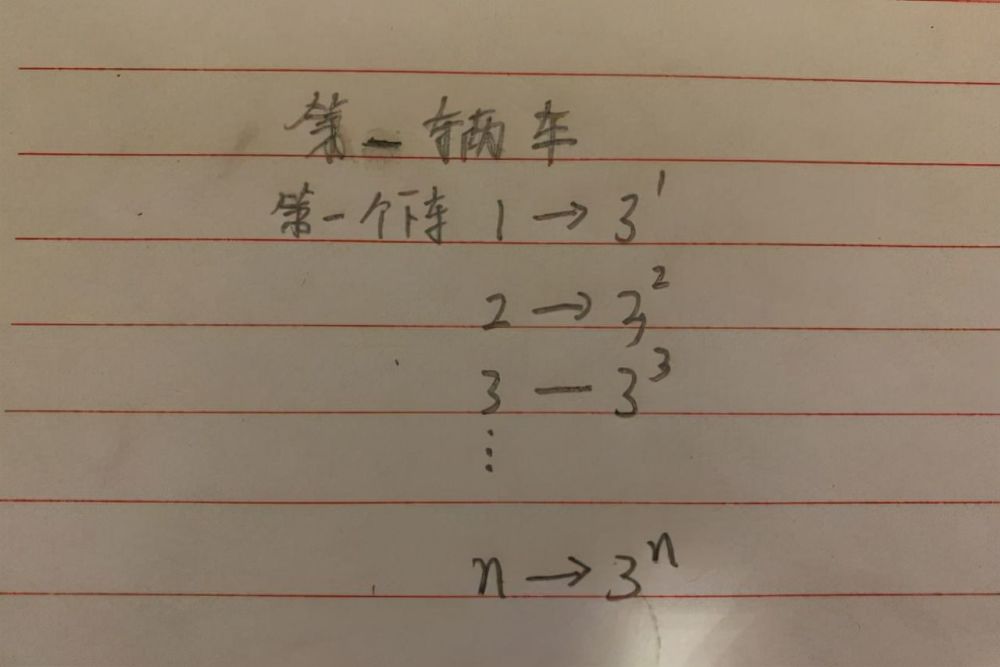 第一辆车
第一个下车 1 → 3¹
2 → 3²
3 — 3³
⋮
n → 3ⁿ